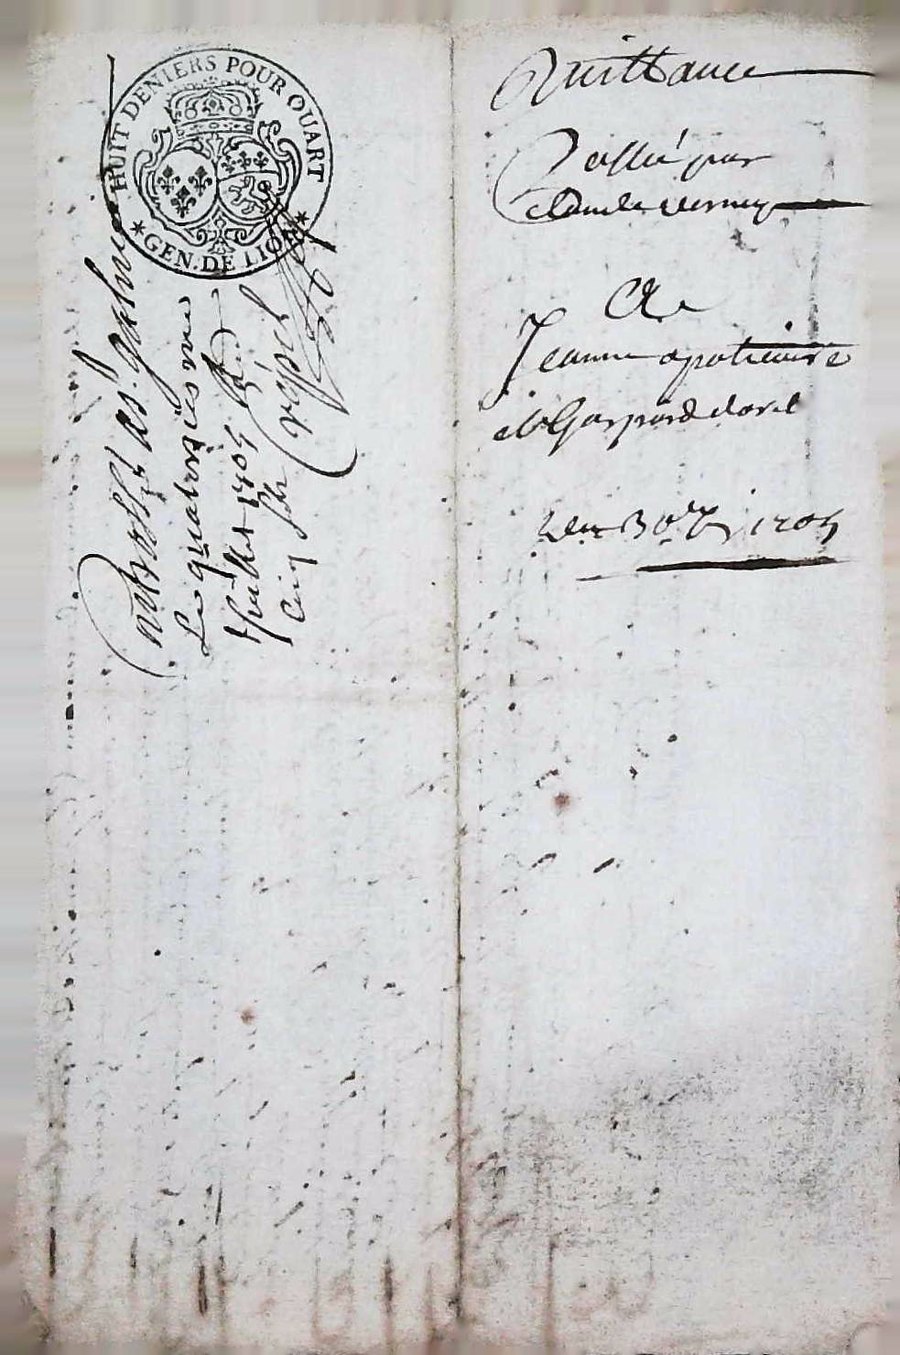 HUIT DENIERS POUR QUART
* GEN. DE LION *
Controllé a St. galmier
Le quatorziesme
Juillet 1705 Reçu
cinq sols
Quittance
Passé par
Claude verney
A
Jeanne apoticaire
et Gaspard dorel
Du 30e 1705